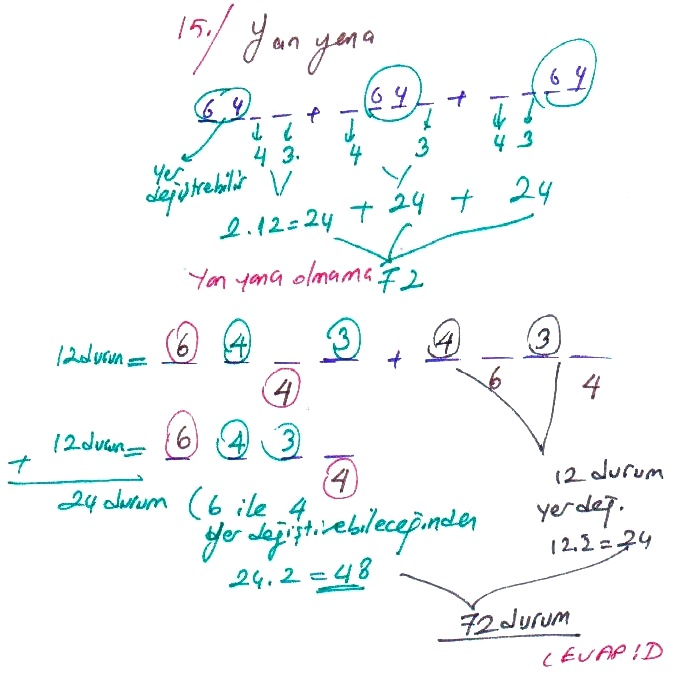 15./ Yan yena
6 4 _ _ + _ 6 4 _ + _ _ 6 4
4 3. 4 3 4 3
yer değiştrebilir
2.12=24 + 24 + 24
Yan yana olmama 72
12durum= 6 4 _ 3 + 4 _ 3 _
4 6 4
+ 12durum= 6 4 3 _
4
24 durum (6 ile 4
yer değiştirebileceğinden
24.2=48
12 durum
yer değ.
12.2=24
72 durum
CEVAP:D